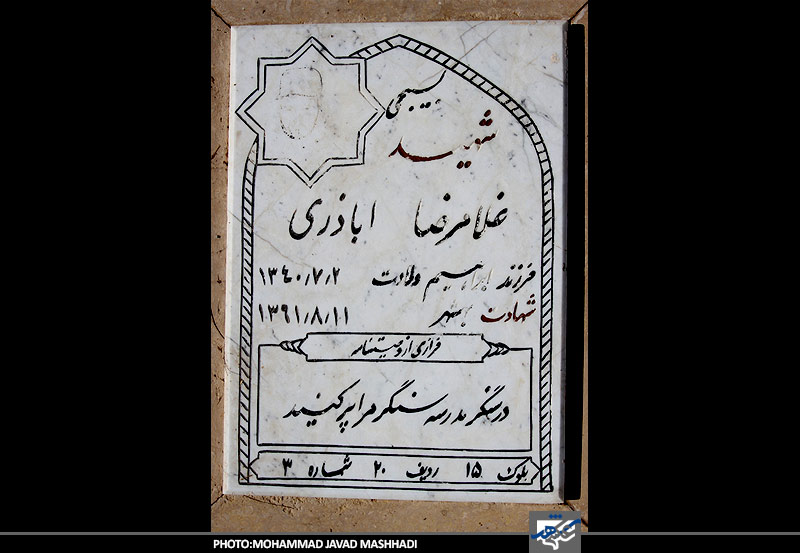 بسیجی
شهید
غلامرضا اباذری
فرزند ابراهیم ولادت ۱۳۴۰/۷/۲
شهادت ۱۳۶۱/۸/۱۱
فرازی از وصیتنامه
در سنگر مدرسه سنگر مرا پر کنید
بلوک ۱۵ ردیف ۲۰ شماره ۳
PHOTO:MOHAMMAD JAVAD MASHHADI